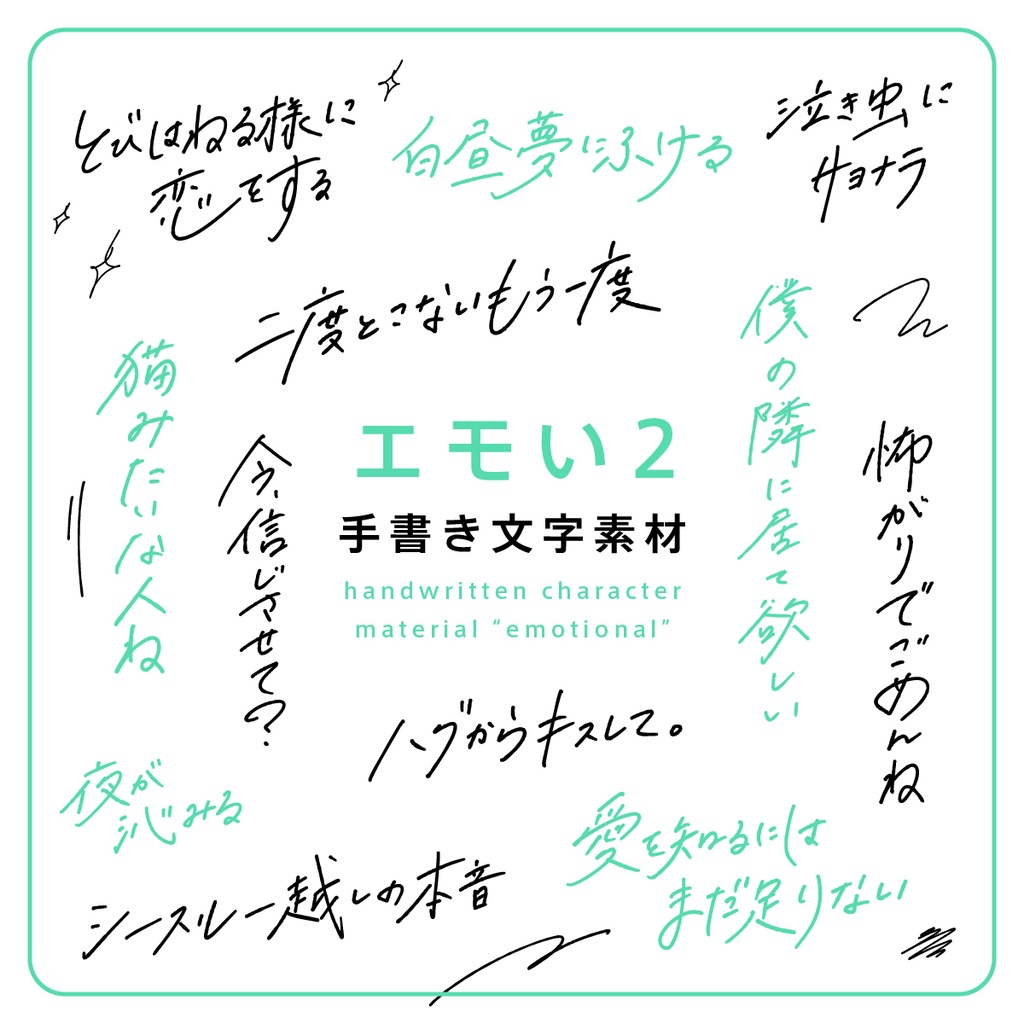 とびはねる様に
恋をする
白昼夢にふける
泣き虫に
サヨナラ
二度とこないもう一度
僕の隣に居て欲しい
猫みたいな人ね
今、信じさせて?
エモい2
手書き文字素材
handwritten character
material “emotional”
怖がりでごめんね
ハグからキスして。
夜が
沁みる
愛を知るには
まだ足りない
シースルー越しの本音